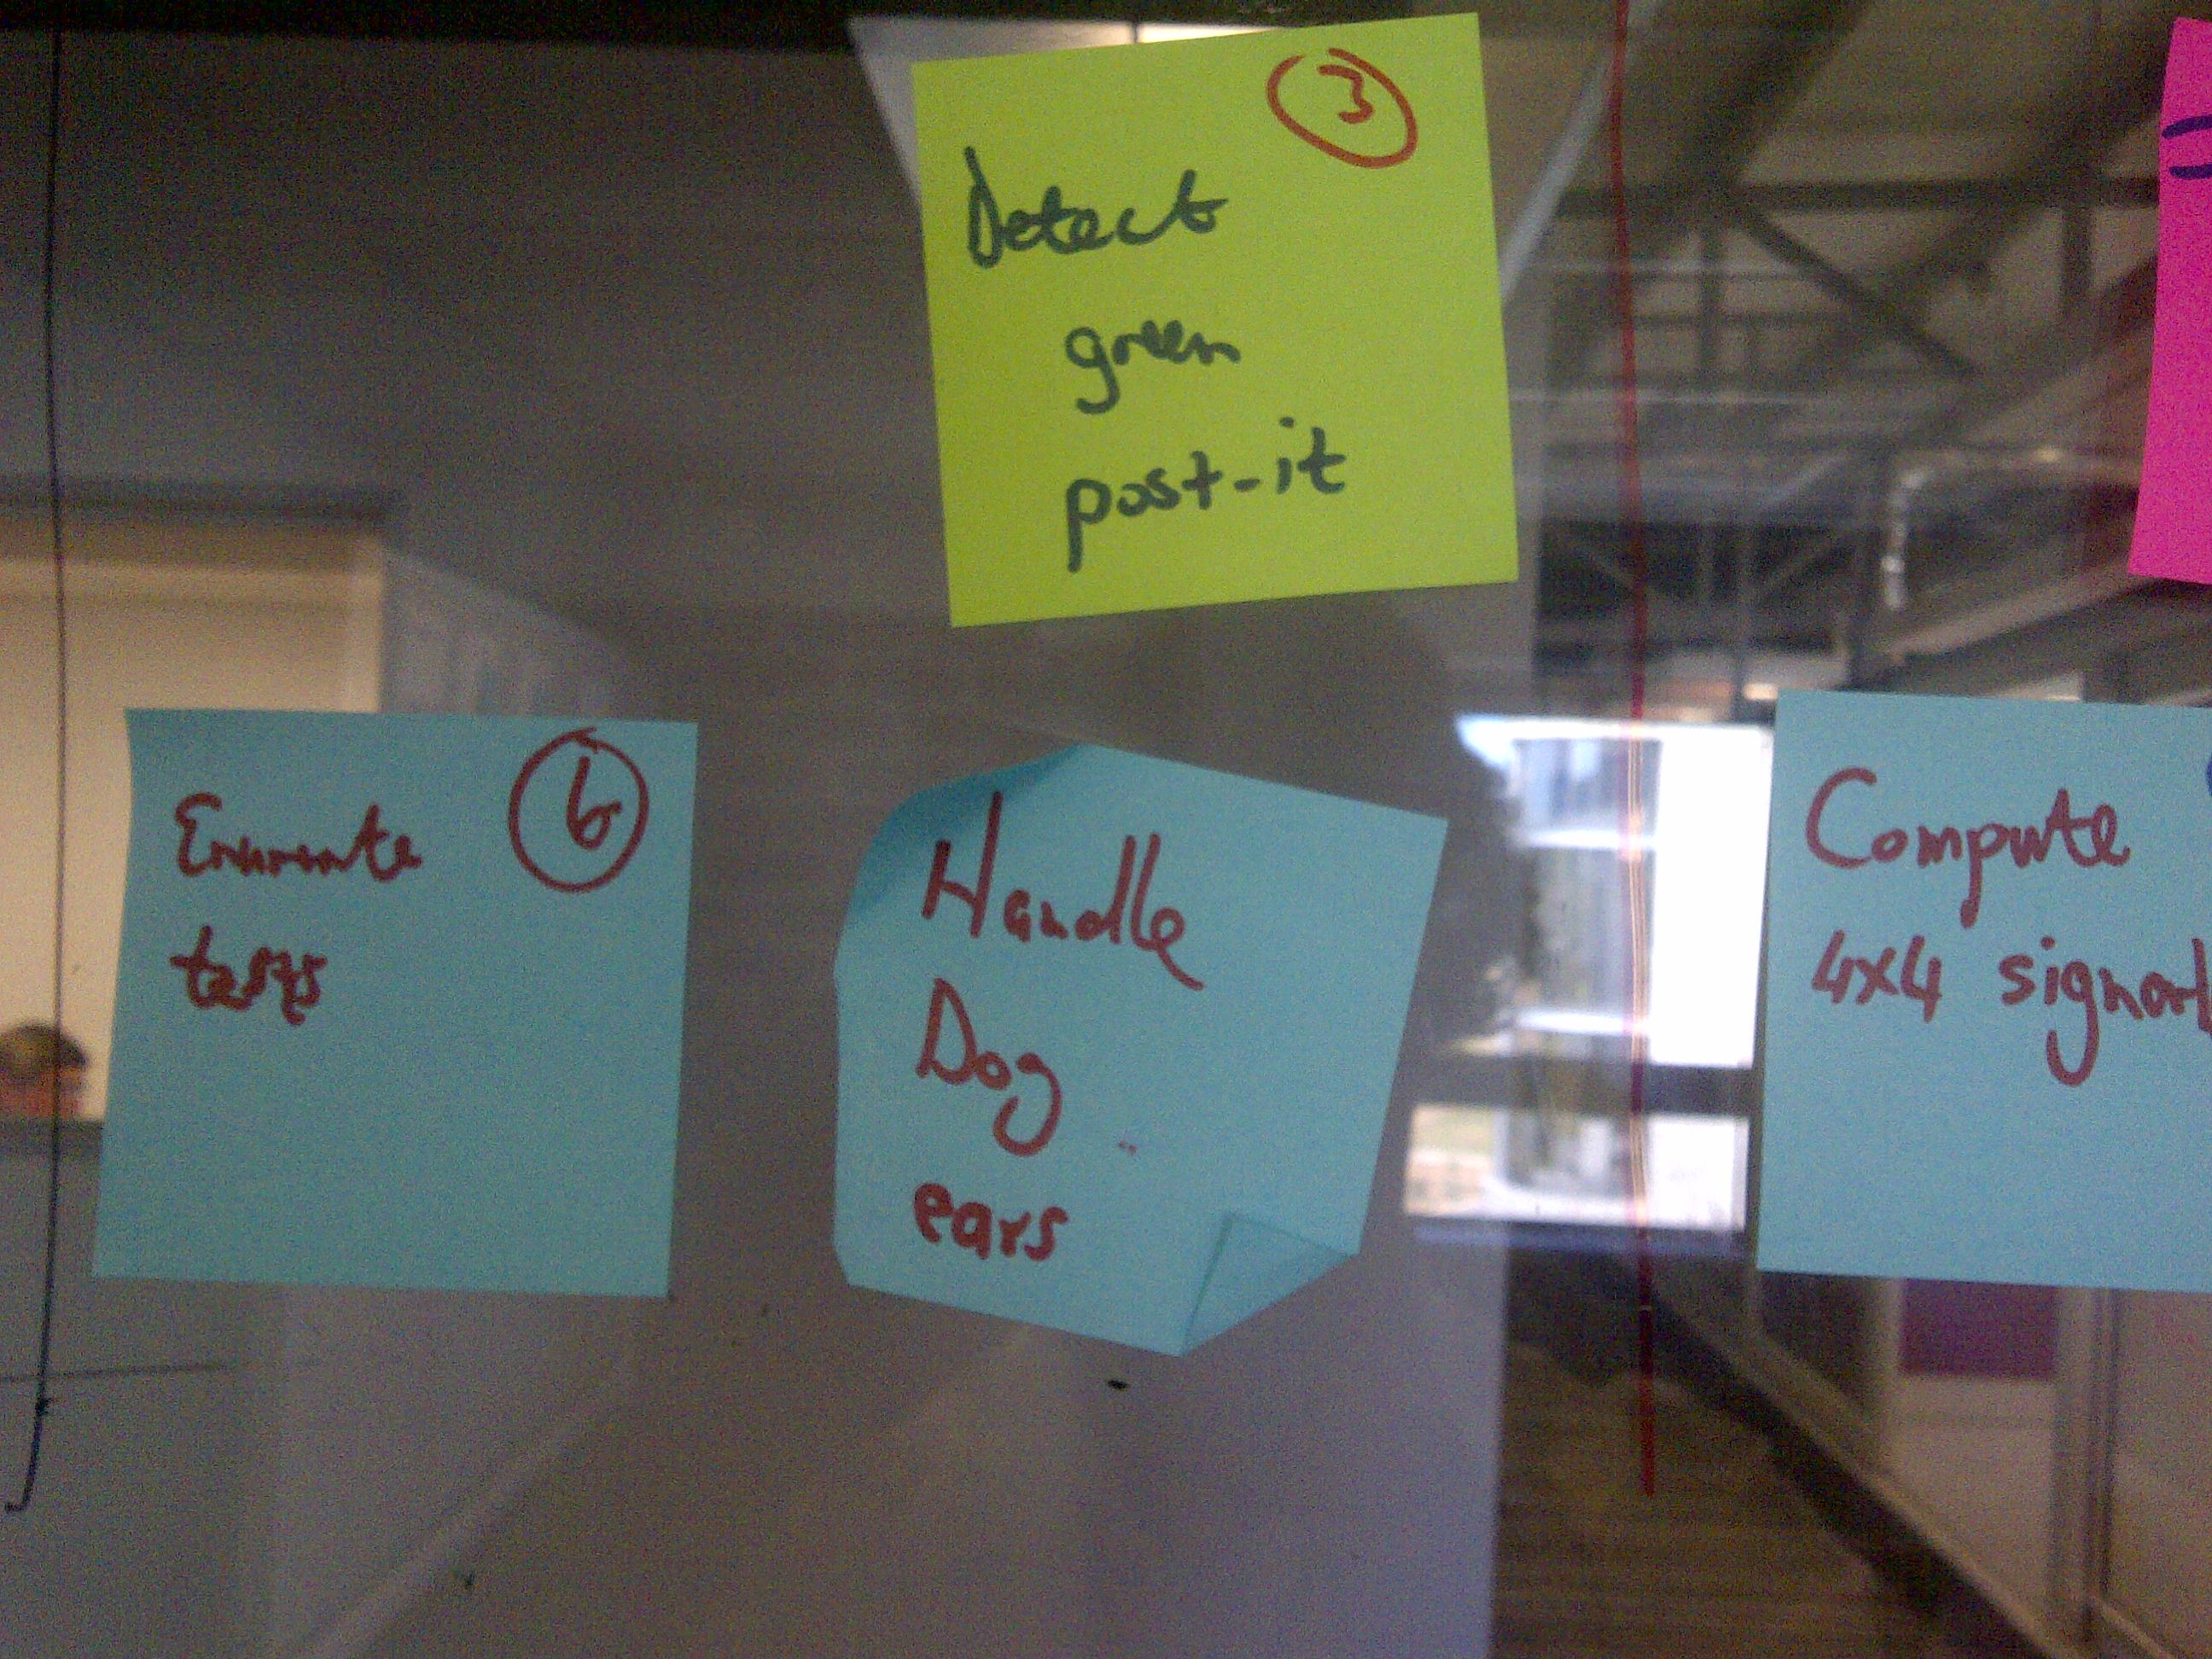 3
Detect
green
post-it
6
tests
Handle
Dog
ears
Compute
4x4 signat